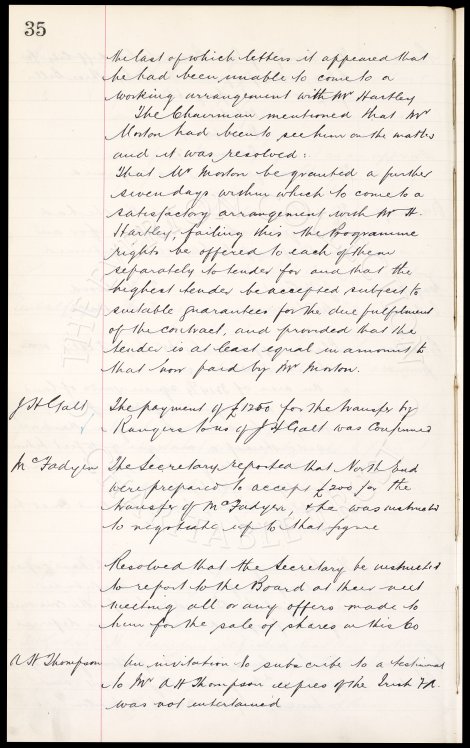 35
the last of which letters it appeared that
he had been unable to come to a
working arrangement with Mr Hartley
The Chairman mentioned that Mr
Morton had been to see him on the matter
and it was resolved:
That Mr Morton be granted a further
seven days within which to come to a
satisfactory arrangement with Mr H.
Hartley, failing this the Programme
rights be offered to each of them
separately to tender for and that the
highest tender be accepted subject to
suitable guarantees for the due fulfilment
of the contract, and provided that the
tender is at least equal in amount to
that now paid by Mr Morton.
J H Galt The payment of £1250 for the transfer by
Rangers to us of J H Galt was Confirmed
McFadyen The Secretary reported that North End
were prepared to accept £200 for the
transfer of McFadyen, & he was instructed
to negotiate up to that figure
Resolved that the Secretary be instructed
to report to the Board at their next
meeting all or any offers made to
him for the sale of shares in this Co
A H Thompson An invitation to subscribe to a testimonial
to Mr A H Thompson expres of the Irish F.A.
was not entertained